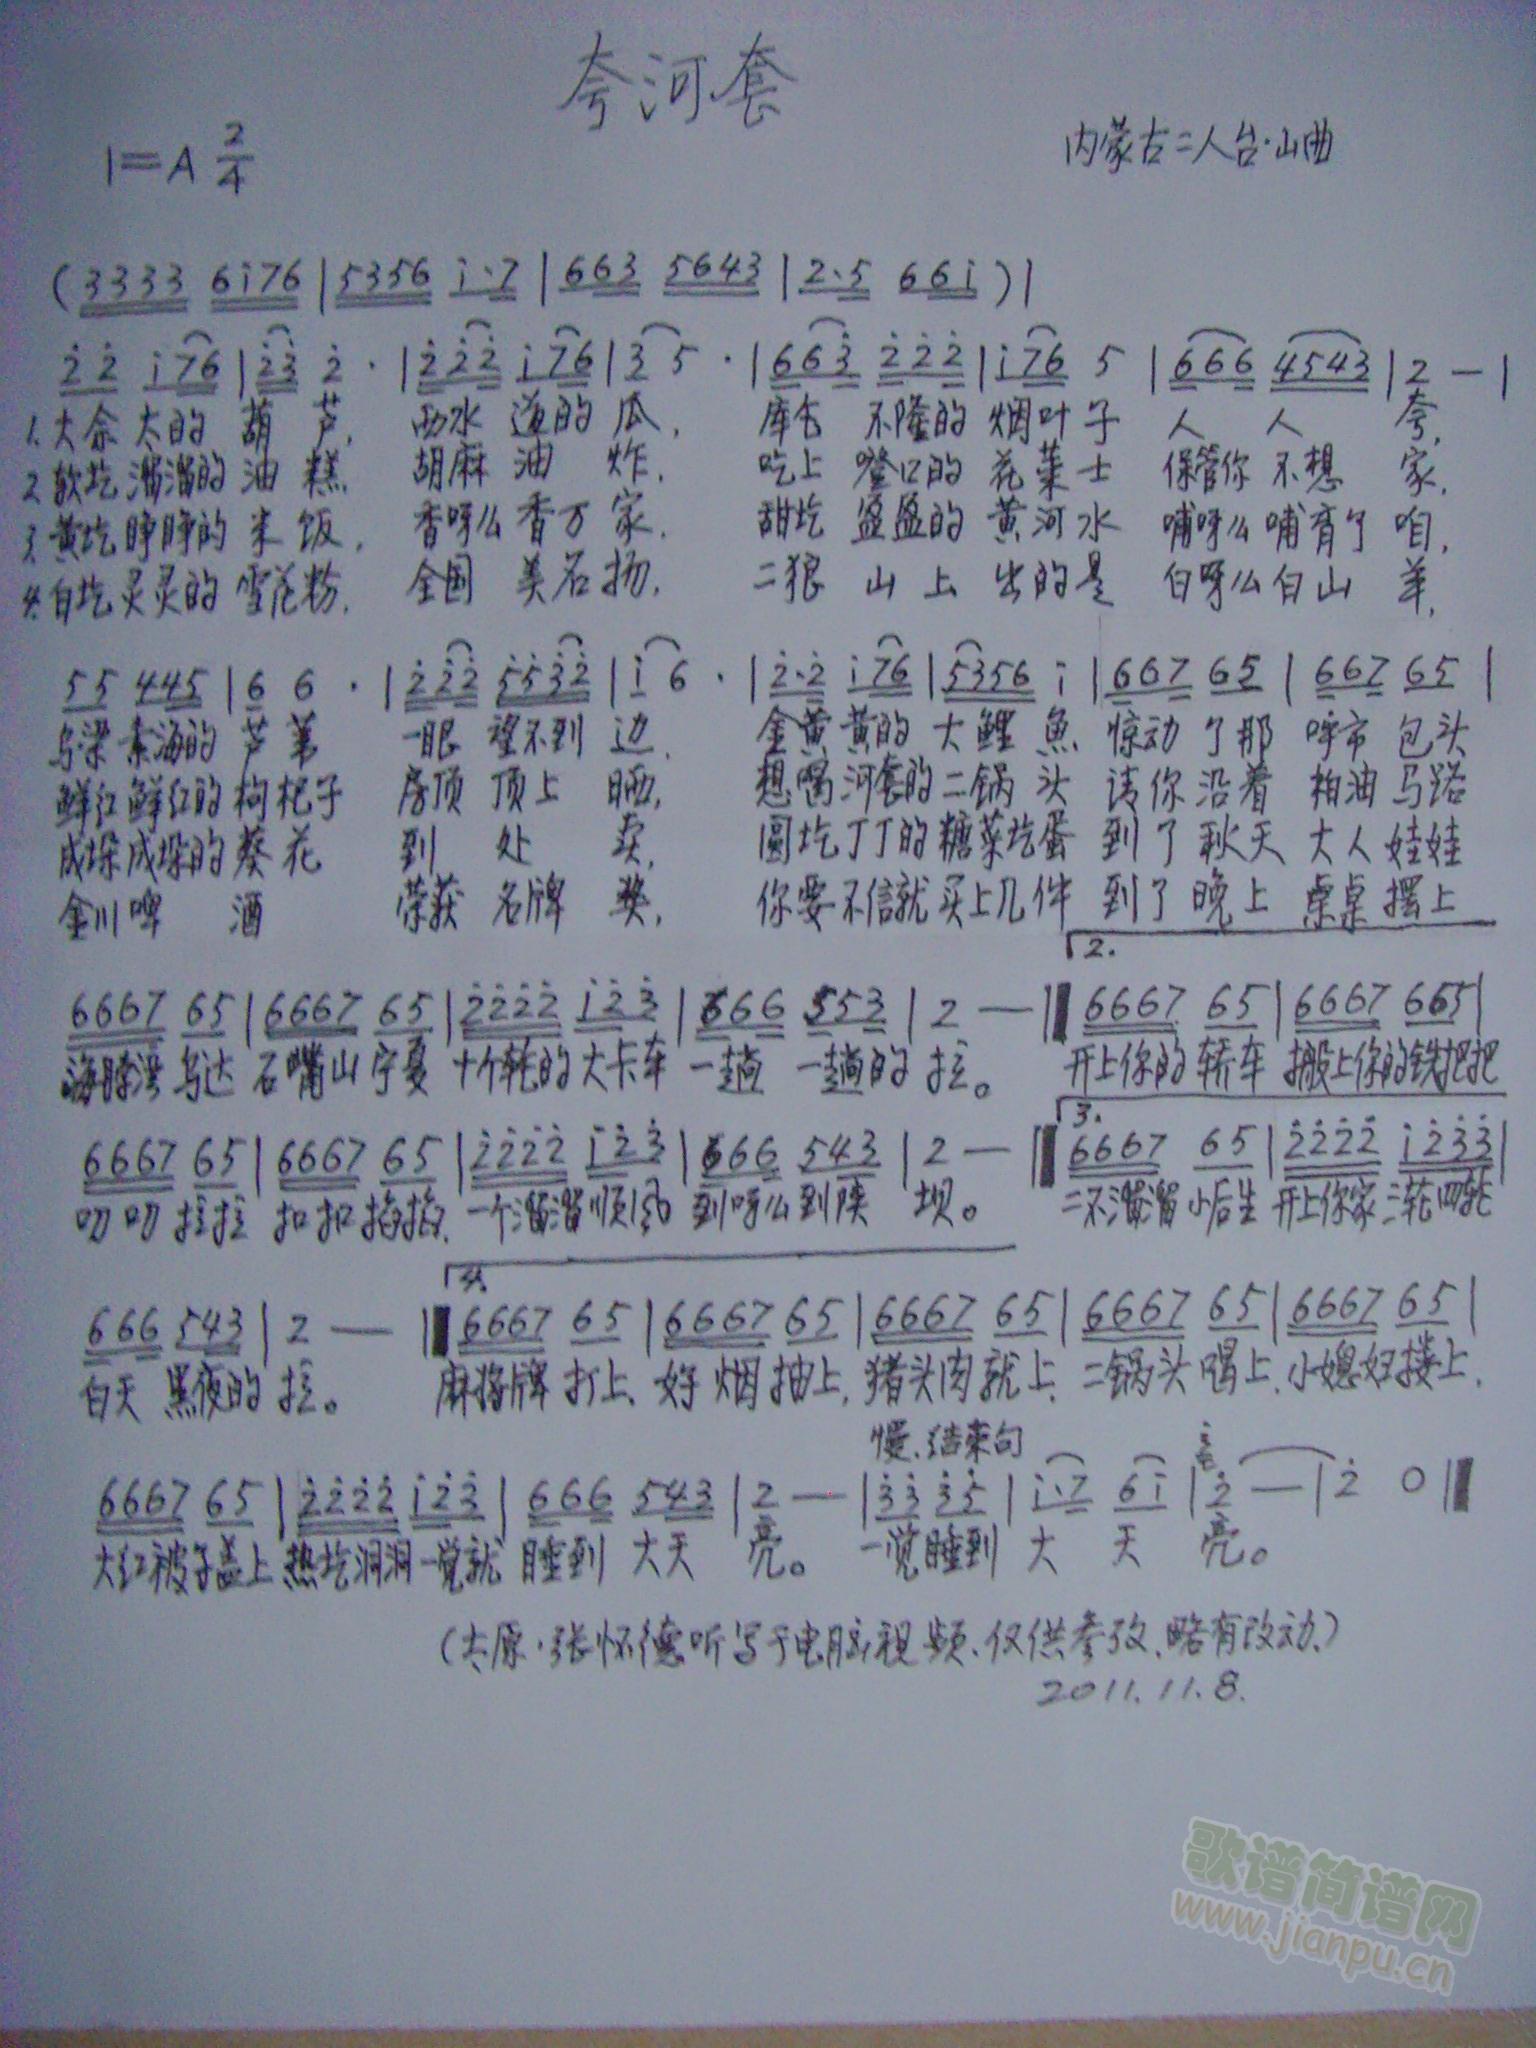 夸河套
1=A 2/4
内蒙古二人台·山曲
(3333 6i76 | 5356 i·7 | 663 5643 | 2·5 66i) |
2̇2̇ i76 | 2̇3̇ 2̇· | 2̇2̇2̇ i76 | 3 5· | 663̇ 2̇2̇2̇ | i76 5 | 666 4543 | 2 — |
1.大佘太的葫芦, 西水道的瓜, 库仑不隆的烟叶子 人人夸,
2.软圪溜溜的油糕 胡麻油炸, 吃上噔口的花莱士 保管你不想家,
3.黄圪睁睁的米饭, 香呀么香万家, 甜圪盈盈的黄河水 哺呀么哺育了咱,
4.白圪灵灵的雪花粉, 全国美名扬, 二狼山上出的是 白呀么白山羊,
55 445 | 6 6· | 2̇2̇2̇ 5̇5̇3̇2̇ | i 6· | 2̇·2̇ i76 | 5356 i | 667 65 | 667 65 |
乌梁素海的芦苇 一眼望不到边, 金黄黄的大鲤魚 惊动了那呼市包头
鲜红鲜红的枸杞子 房顶顶上晒, 想喝河套的二锅头 请你沿着柏油马路
成垛成垛的葵花 到处卖, 圆圪丁丁的糖菜圪蛋 到了秋天大人娃娃
金川啤酒 荣获名牌奖, 你要不信就买上几件 到了晚上桌桌摆上
2.
6667 65 | 6667 65 | 2̇2̇2̇2̇ i2̇3̇ | 666 553 | 2 — | 6667 65 | 6667 665 |
海脖湾乌达石嘴山宁夏十个轮的大卡车一趟一趟的拉。 开上你的轿车搬上你的铁把把
3.
6667 65 | 6667 65 | 2̇2̇2̇2̇ i2̇3̇ | 666 543 | 2 — | 6667 65 | 2̇2̇2̇2̇ i2̇3̇3̇ |
叨叨拉拉扣扣掐掐,一个溜溜顺风到呀么到陕坝。 二不溜溜小后生开上你家三轮四轮
4.
666 543 | 2 — | 6667 65 | 6667 65 | 6667 65 | 6667 65 | 6667 65 |
白天黑夜的拉。 麻将牌打上、好烟抽上,猪头肉就上、二锅头喝上、小媳妇搂上,
慢、结束句
6667 65 | 2̇2̇2̇2̇ i2̇3̇ | 666 543 | 2 — | 3̇3̇ 3̇5̇ | i·7 6i | 2̇ — | 2̇ 0 |
大红被子盖上热圪洞洞一觉就睡到大天亮。 一觉睡到大天亮。
(太原·张怀德听写于电脑视频、仅供参考、略有改动)
2011.11.8.
歌谱简谱网
www.jianpu.cn